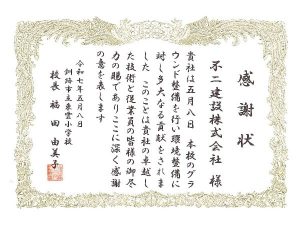 感謝状
不二建設株式会社 様
貴社は五月八日 本校のグラ
ウンド整備を行い環境整備に
対し多大なる貢献をされま
した このことは貴社の卓越し
た技術と従業員の皆様の御尽
力の賜でありここに深く感謝
の意を表します
令和七年五月八日
釧路市立東雲小学校
校長 福田 由美子